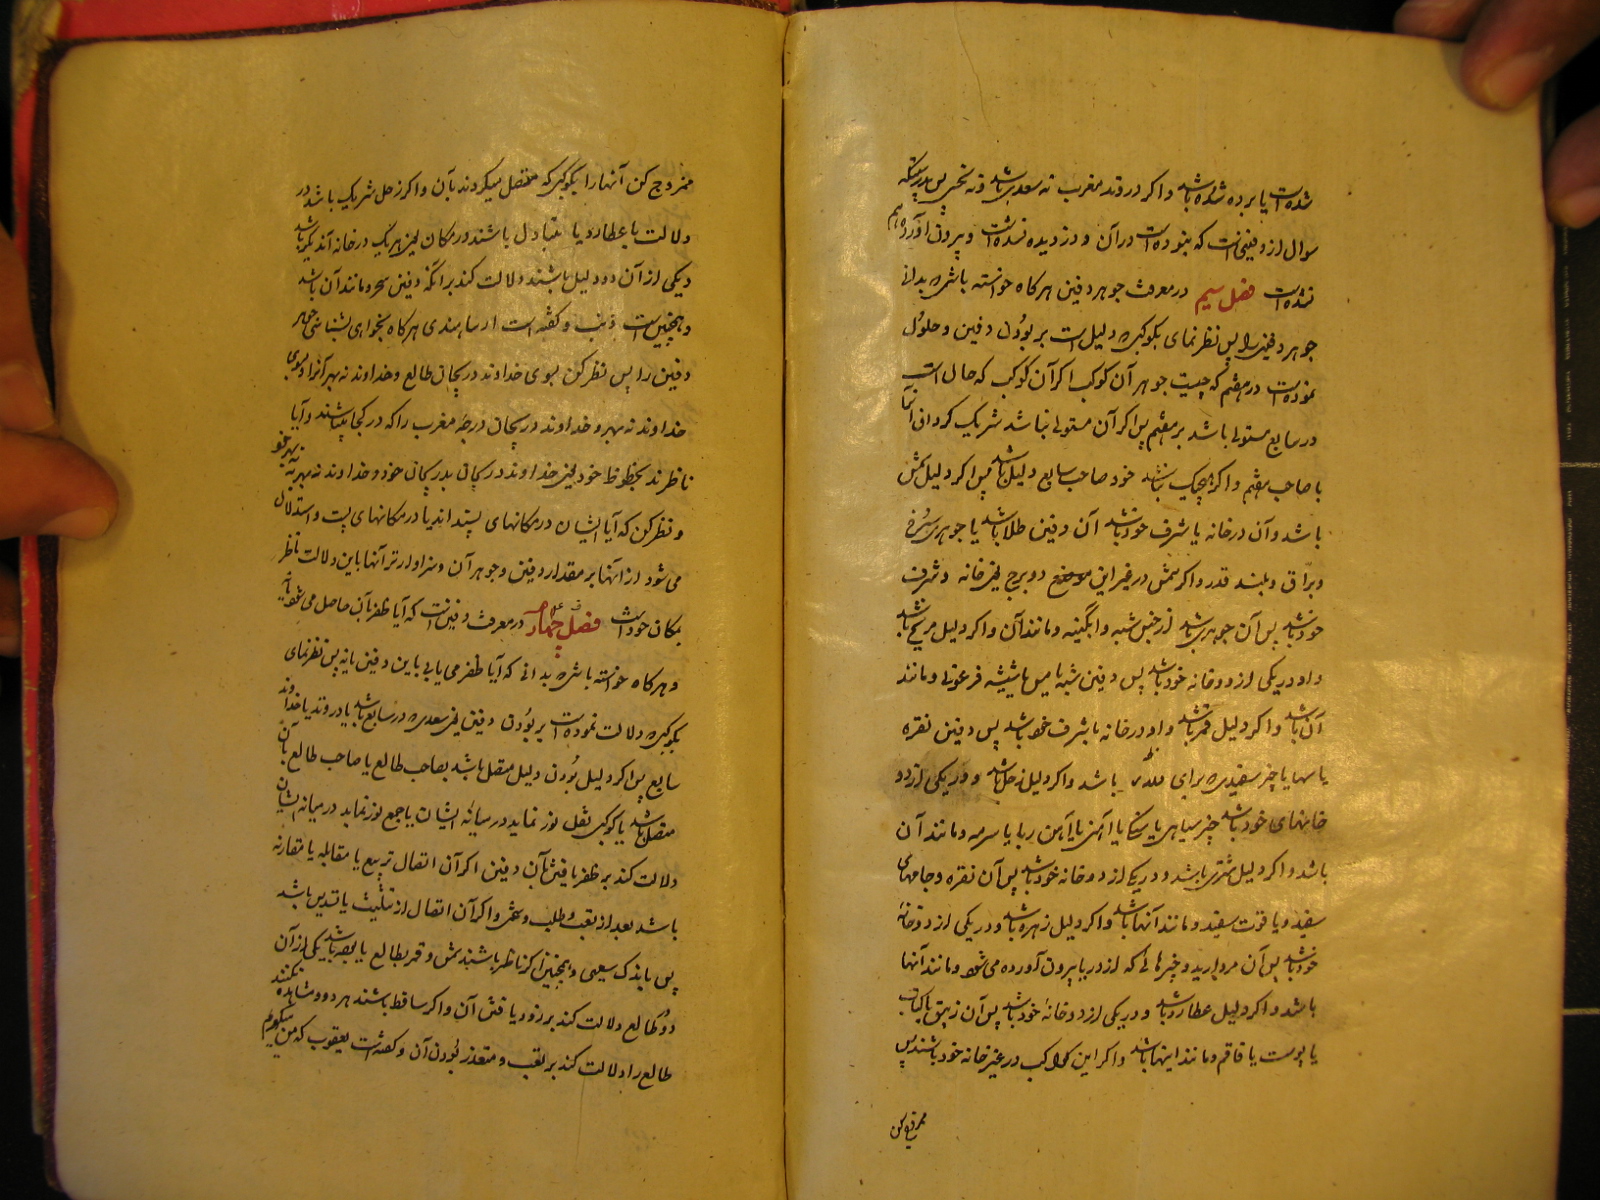 شده است یا برده شده باشد و اگر در وتد مغرب نه سعدی باشد و نه نحسی پس بدرستیکه
سوال از دفینی است که نبوده است در آن و دزدیده نشده است و بیرون آورده هم
نشده است فصل سیم در معرفت جوهر دفین هرگاه خواسته باشی که بدانی
جوهر دفینی را پس نظر نمای بکوکبی که دلیل است بر بودن دفین و حلول
نموده است در هفتم که چیست جوهر آن کوکب اگر آن کوکب که حال است
در سابع مستولی باشد بر هفتم پس اگر آن مستولی نباشد شریک گردان آنرا
با صاحب هفتم و اگر هیچیک نباشند خود صاحب سابع دلیل باشد پس اگر دلیل شمس
باشد و آن در خانه یا شرف خود باشد آن دفین طلا باشد یا جوهری سرخ
و براق و بلند قدر و اگر شمس در غیر این موضع دو برج یعنی خانه و شرف
خود باشد پس آن جوهری باشد از جنس شبه و آبگینه و مانند آن و اگر دلیل مریخ باشد
و او در یکی از دو خانه خود باشد پس دفین شبه یا مس یا شیشه فرعونی و مانند
آن باشد و اگر دلیل قمر باشد و او در خانه یا شرف خود باشد پس دفین نقره
یا سها یا چیز سفیدی که برای باشد و اگر دلیل زحل باشد و در یکی از دو
خانهای خود باشد چیز سیاهی یا سنگ یا آهن یا آهن ربا یا سرمه و مانند آن
باشد و اگر دلیل مشتری باشد و در یکی از دو خانه خود باشد پس آن نقره و جامهای
سفید و یاقوت سفید و مانند آنها باشد و اگر دلیل زهره باشد و در یکی از دو خانه
خود باشد پس آن مروارید و چیزهائی که از دریا بیرون آورده می شود و مانند آنها
باشد و اگر دلیل عطارد باشد و در یکی از دو خانه خود باشد پس آن زیبق یا کتاب
یا پوست یا قاقم و مانند اینها باشد و اگر این کواکب در غیر خانه خود باشند پس
ممزوج کن
ممزوج کن آنها را بکوکبی که متصل میگردند بآن و اگر زحل شریک باشد در
دلالت با عطارد یا متبادل باشند در مکان یعنی هر یک در خانه آندیگر باشد
و یکی از آن دو دلیل باشند دلالت کند بر آنکه دفین سحر و مانند آن باشد
و همچنین است ذنب و گفته است ارسا هندی هرگاه بخواهی بشناسی جوهر
دفین را پس نظر کن بسوی خداوند دریجان طالع و خداوند نه بهر آنرا و بسوی
خداوند نه بهر و خداوند دریجان درجهٔ مغرب را که در کجا میباشند و آیا
ناظرند بحظوظ خود یعنی خداوند دریجان بدریجان خود و خداوند نه بهر به نه بهر خود
و نظر کن که آیا ایشان در مکانهای پسندیده اند یا در مکانهای پست و استدلال
می شود از آنها بر مقدار دفین و جوهر آن و سزاوارتر آنها باین دلالت ناظر
بمکان خود است فصل چهارم در معرفت دفین است که آیا ظفر بآن حاصل می شود یا نه
و هرگاه خواسته باشی که بدانی که آیا ظفر می یابی باین دفین یا نه پس نظر نمای
بکوکبی که دلالت نموده است بر بودن دفین یعنی سعدی که در سابع باشد یا در وتد یا خداوند
سابع پس اگر دلیل بودن دلیل متصل باشد بصاحب طالع یا صاحب طالع بآن
متصل باشد یا کوکبی نقل نور نماید در میانه ایشان یا جمع نور نماید در میانه ایشان
دلالت کند بر ظفر یافتن بآن دفین اگر آن اتصال تربیع یا مقابله یا مقارنه
باشد بعد از تعب و طلب و سعی و اگر آن اتصال از تثلیث یا تسدیس باشد
پس باندک سعیی و همچنین اگر ناظر باشند شمس و قمر بطالع یا بوده باشد یکی از آن
دو طالع دلالت کند بر زود یافتن آن و اگر ساقط باشند هر دو و مشاهده نکنند
طالع را دلالت کند بر تعب و متعذر بودن آن و گفته است یعقوب که من میگویم